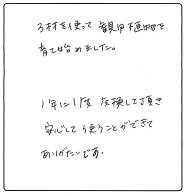 3材を使って 観用植物を
育て始めました。
1年に1度 交換して頂き
安心して使うことができて
ありがたいです。